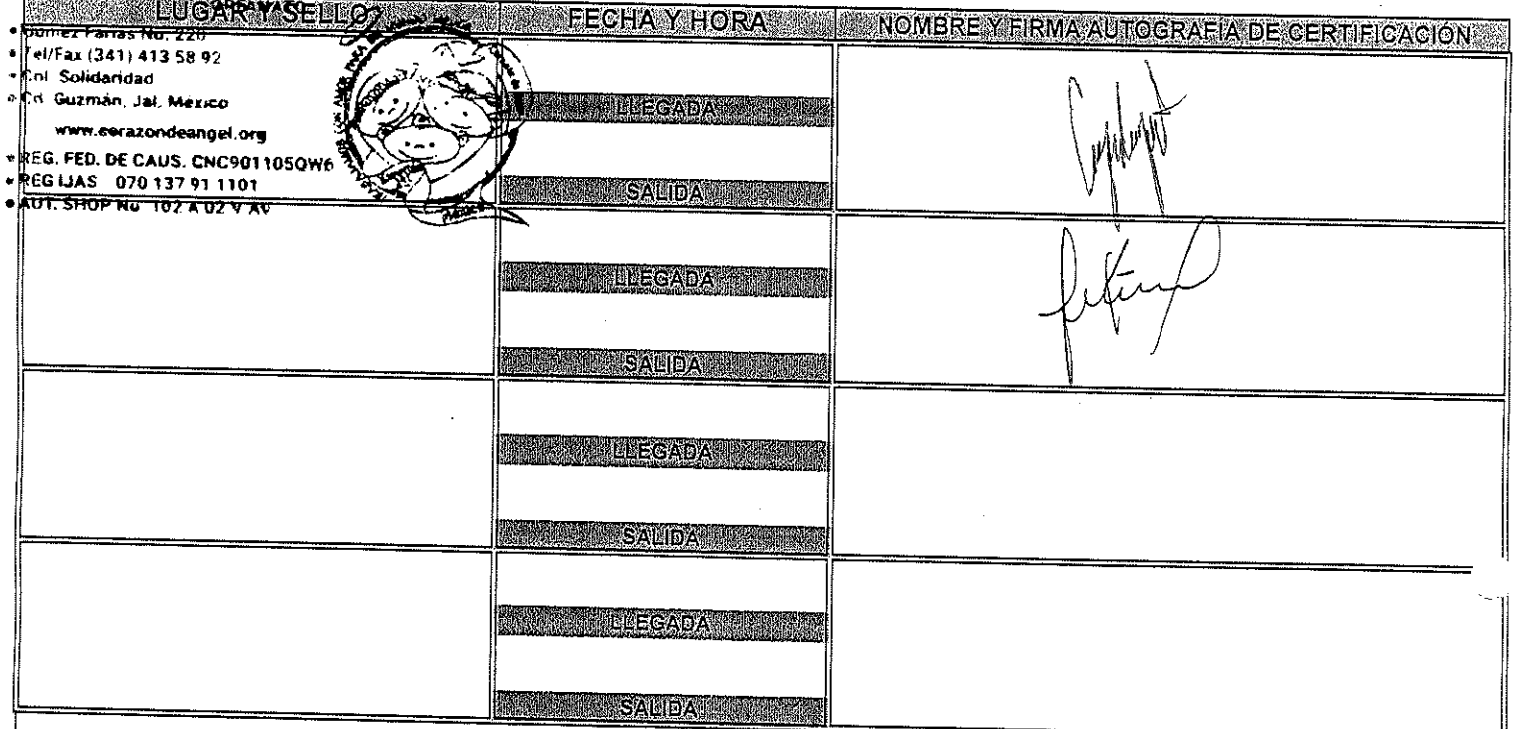 LUGAR Y SELLO FECHA Y HORA NOMBRE Y FIRMA AUTOGRAFÍA DE CERTIFICACIÓN
• Gómez Farías No. 220
• Tel/Fax (341) 413 58 92
• Col. Solidaridad
• Cd. Guzmán, Jal. México
www.corazondeangel.org
• REG. FED. DE CAUS. CNC901105QW6
• REG IJAS 070 137 91 1101
• AUT. SHCP No 102 A 02 V AV
LLEGADA
SALIDA
LLEGADA
SALIDA
LLEGADA
SALIDA
LLEGADA
SALIDA